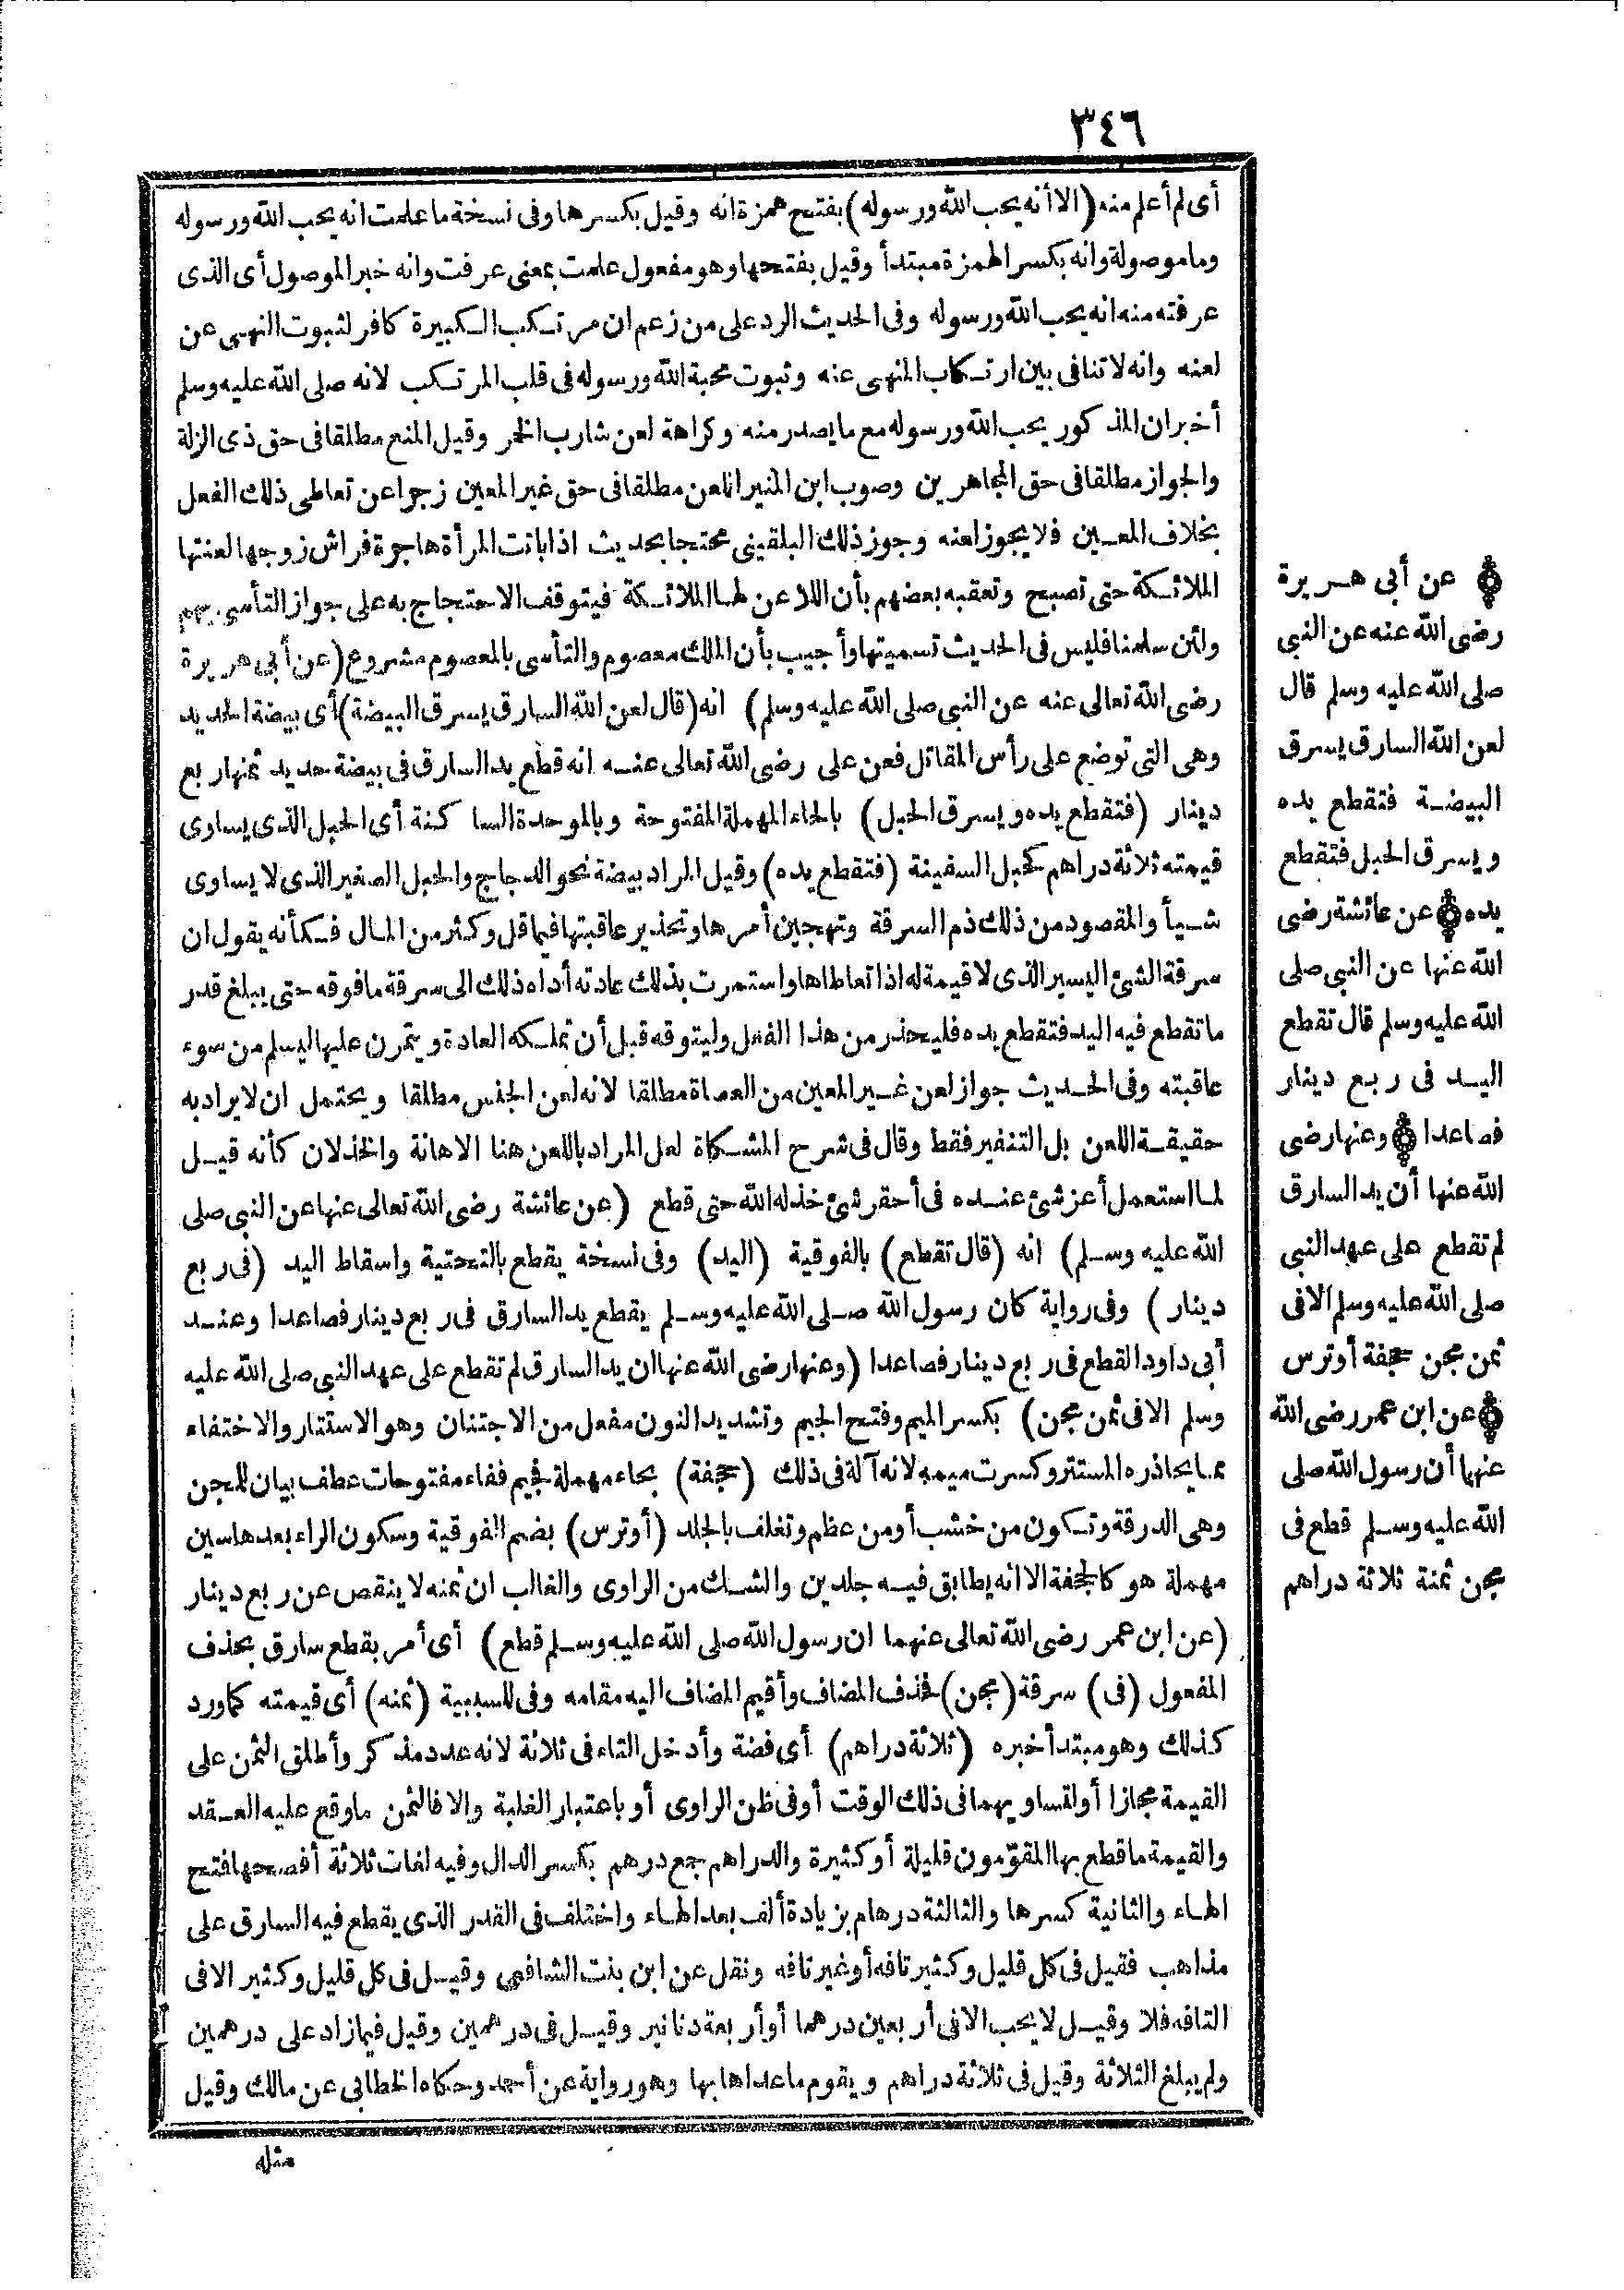 ٣٤٦
أى لم أعلم منه (الا أنه يحب الله ورسوله) بفتح همزة انه وقيل بكسرها وفى نسخة ما علمت انه يحب الله ورسوله
وما موصولة وانه بكسر الهمزة مبتدأ وقيل بفتحها وهو مفعول علمت بمعنى عرفت وانه خبر الموصول أى الذى
عرفته منه انه يحب الله ورسوله وفى الحديث الرد على من زعم ان مرتكب الكبيرة كافر لثبوت النهى عن
لعنه وانه لا تنافى بين ارتكاب المنهى عنه وثبوت محبة الله ورسوله فى قلب المرتكب لانه صلى الله عليه وسلم
أخبر ان المذكور يحب الله ورسوله مع ما يصدر منه وكراهة لعن شارب الخمر وقيل المنع مطلقا فى حق ذى الزلة
والجواز مطلقا فى حق المجاهرين وصوب ابن المنير ان لعن مطلقا فى حق غير المعين زجرا عن تعاطى ذلك الفعل
بخلاف المعين فلا يجوز لعنه وجوز ذلك البلقينى محتجا بحديث اذا باتت المرأة هاجرة فراش زوجها لعنتها
الملائكة حتى تصبح وتعقبه بعضهم بأن اللاعن لها الملائكة فيتوقف الاحتجاج به على جواز التأسى بهم
ولئن سلمنا فليس فى الحديث تسميتها وأجيب بأن الملك معصوم والتأسى بالمعصوم مشروع (عن أبى هريرة
رضى الله تعالى عنه عن النبى صلى الله عليه وسلم) انه (قال لعن الله السارق يسرق البيضة) أى بيضة الحديد
وهى التى توضع على رأس المقاتل فعن على رضى الله تعالى عنه انه قطع يد السارق فى بيضة حديد ثمنها ربع
دينار (فتقطع يده ويسرق الحبل) بالحاء المهملة المفتوحة وبالموحدة الساكنة أى الحبل الذى يساوى
قيمته ثلاثة دراهم كحبل السفينة (فتقطع يده) وقيل المراد بيضة نحو الدجاج والحبل الصغير الذى لا يساوى
شيأ والمقصود من ذلك ذم السرقة وتهجين أمرها وتحذير عاقبتها فيما قل وكثر من المال فكأنه يقول ان
سرقة الشئ اليسير الذى لا قيمة له اذا تعاطاها واستمرت بذلك عادته أداه ذلك الى سرقة ما فوقه حتى يبلغ قدر
ما تقطع فيه اليد فتقطع يده فليحذر من هذا الفعل وليتوقه قبل أن تملكه العادة ويتمرن عليها ليسلم من سوء
عاقبته وفى الحديث جواز لعن غير المعين من العصاة مطلقا لانه لعن الجنس مطلقا ويحتمل ان لا يراد به
حقيقة اللعن بل التنفير فقط وقال فى شرح المشكاة لعل المراد باللعن هنا الاهانة والخذلان كأنه قيل
لما استعمل أعز شئ عنده فى أحقر شئ خذله الله حتى قطع (عن عائشة رضى الله تعالى عنها عن النبى صلى
الله عليه وسلم) انه (قال تقطع) بالفوقية (اليد) وفى نسخة يقطع بالتحتية واسقاط اليد (فى ربع
دينار) وفى رواية كان رسول الله صلى الله عليه وسلم يقطع يد السارق فى ربع دينار فصاعدا وعند
أبى داود القطع فى ربع دينار فصاعدا (وعنها رضى الله عنها ان يد السارق لم تقطع على عهد النبى صلى الله عليه
وسلم الا فى ثمن مجن) بكسر الميم وفتح الجيم وتشديد النون مفعل من الاجتنان وهو الاستتار والاختفاء
مما يحاذره المستتر وكسرت ميمه لانه آلة فى ذلك (حجفة) بحاء مهملة فجيم ففاء مفتوحات عطف بيان للمجن
وهى الدرقة وتكون من خشب أو من عظم وتغلف بالجلد (أو ترس) بضم الفوقية وسكون الراء بعدها سين
مهملة هو كالحجفة الا انه يطابق فيه جلدين والشك من الراوى والغالب ان ثمنه لا ينقص عن ربع دينار
(عن ابن عمر رضى الله تعالى عنهما ان رسول الله صلى الله عليه وسلم قطع) أى أمر بقطع سارق بحذف
المفعول (فى) سرقة (مجن) فحذف المضاف وأقيم المضاف اليه مقامه وفى للسببية (ثمنه) أى قيمته كما ورد
كذلك وهو مبتدأ خبره (ثلاثة دراهم) أى فضة وأدخل التاء فى ثلاثة لانه عدد مذكر وأطلق الثمن على
القيمة مجازا أو لتساويهما فى ذلك الوقت أو فى ظن الراوى أو باعتبار الغلبة والا فالثمن ما وقع عليه العقد
والقيمة ما قطع بها المقوّمون قليلة أو كثيرة والدراهم جمع درهم بكسر الدال وفيه لغات ثلاثة أفصحها فتح
الهاء والثانية كسرها والثالثة درهام بزيادة ألف بعد الهاء واختلف فى القدر الذى يقطع فيه السارق على
مذاهب فقيل فى كل قليل وكثير تافه أو غير تافه ونقل عن ابن بنت الشافعى وقيل فى كل قليل وكثير الا فى
التافه فلا وقيل لا يجب الا فى أربعين درهما أو أربعة دنانير وقيل فى درهمين وقيل فيما زاد على درهمين
ولم يبلغ الثلاثة وقيل فى ثلاثة دراهم ويقوم ما عداها بها وهو رواية عن أحمد وحكاه الخطابى عن مالك وقيل
مثله
عن أبى هريرة
رضى الله عنه عن النبى
صلى الله عليه وسلم قال
لعن الله السارق يسرق
البيضة فتقطع يده
ويسرق الحبل فتقطع
يده عن عائشة رضى
الله عنها عن النبى صلى
الله عليه وسلم قال تقطع
اليد فى ربع دينار
فصاعدا وعنها رضى
الله عنها أن يد السارق
لم تقطع على عهد النبى
صلى الله عليه وسلم الا فى
ثمن مجن حجفة أو ترس
عن ابن عمر رضى الله
عنهما أن رسول الله صلى
الله عليه وسلم قطع فى
مجن ثمنة ثلاثة دراهم